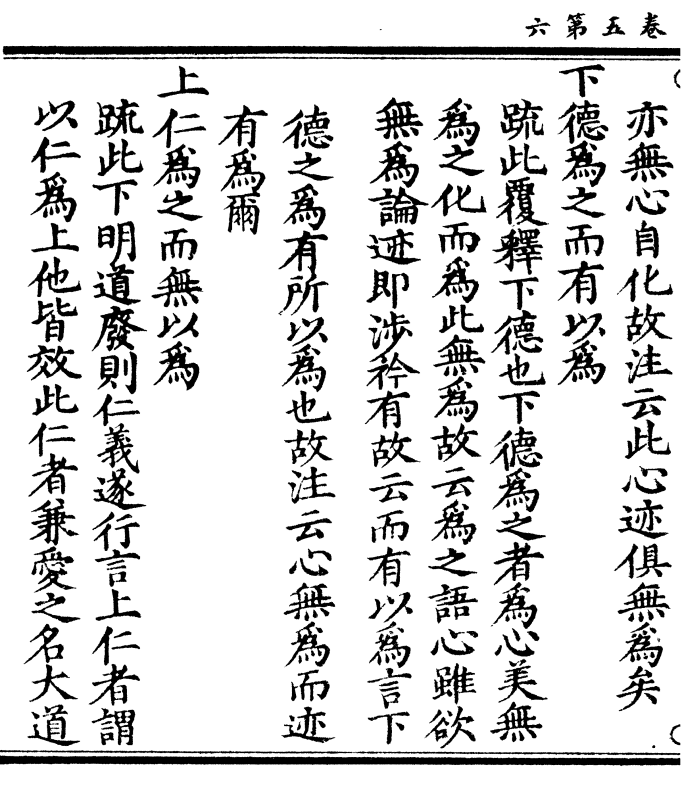 卷五第六
亦無心自化故注云此心迹俱無爲矣
下德爲之而有以爲
疏此覆釋下德也下德爲之者爲心美無
爲之化而爲此無爲故云爲之語心雖欲
無爲論迹即涉矜有故云而有以爲言下
德之爲有所以爲也故注云心無爲而迹
有爲爾
上仁爲之而無以爲
疏此下明道廢則仁義遂行言上仁者謂
以仁爲上他皆效此仁者兼愛之名大道